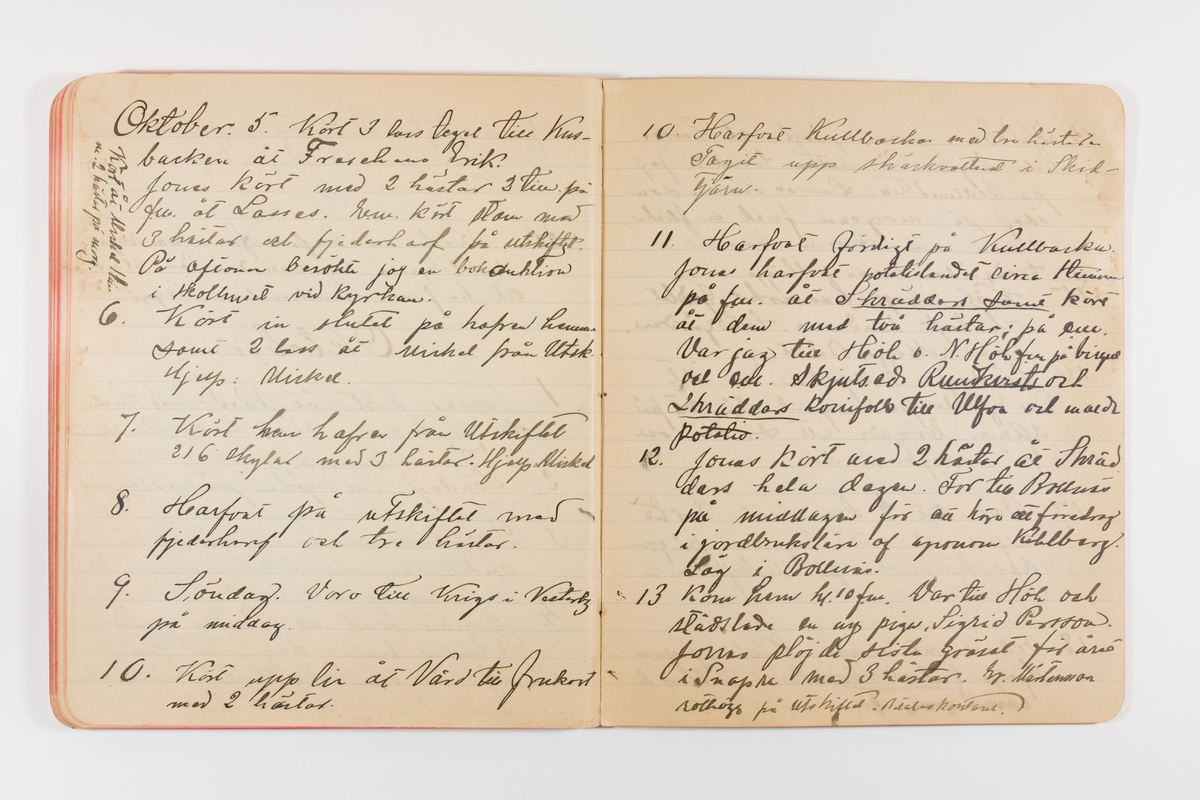 Oktober. 5. Kört 3 lass tegel till Kus-
backen åt Freschens Erik.
Jonas kört med 2 hästar 3 tim. på
fm. åt Lasses. Em. kört stom med
3 hästar och fjederharf på utskiftet.
På aftonen besökte jag en bokauktion
i skolhuset vid kyrkan.
Kört åt Mickel
m. 2 hästar på morg.
6. Kört in slutet på hafren hemma
samt 2 lass åt Mickel från Utsk.
Hjelp: Mickel.
7. Kört hem hafren från Utskiftet
216 skylar med 3 hästar. Hjelp: Mickel
8. Harfvat på utskiftet med
fjederharf och tre hästar.
9. Söndag. Voro till Krigs i Vesterby
på middag.
10. Kört upp lin åt Vård till frukost
med 2 hästar.
10. Harfvat Kullbacka med tre hästar
Tagit upp skäskvattnet i Skid-
tjärn.
11. Harfvat färdigt på Kullbacka.
Jonas harfvat potatislandet circa
på fm. åt Skräddars samt kört
åt dem med två hästar; på em.
Var jag till Höh o. N. Höh fm på
och em. Skjutsade och
Skräddars kornfolk till Ulfva och malde
potatis.
12. Jonas kört med 2 hästar åt Skräd
dars hela dagen. For till Bollnäs
på middagen för att höra ett föredrag
i jordbrukslära af agronom Kihlberg.
Låg i Bollnäs.
13 Kom hem kl. 10 fm. Var till Höh och
städslade en ny piga, Sigrid Persson.
Jonas plöjde sista gräset för året
i Snapre med 3 hästar. Er. Mårtensson
på utskiftet.